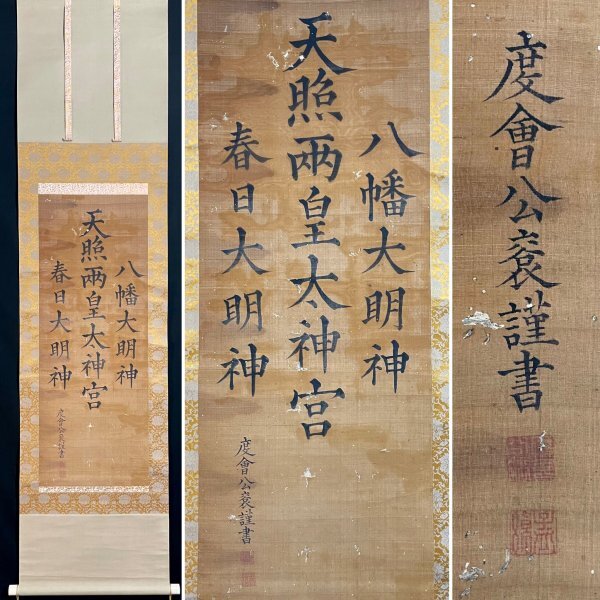 八幡大明神
天照兩皇太神宮
春日大明神
度會公謹書
八幡大明神
天照兩皇太神宮
春日大明神
度會公謹書
度會公謹書